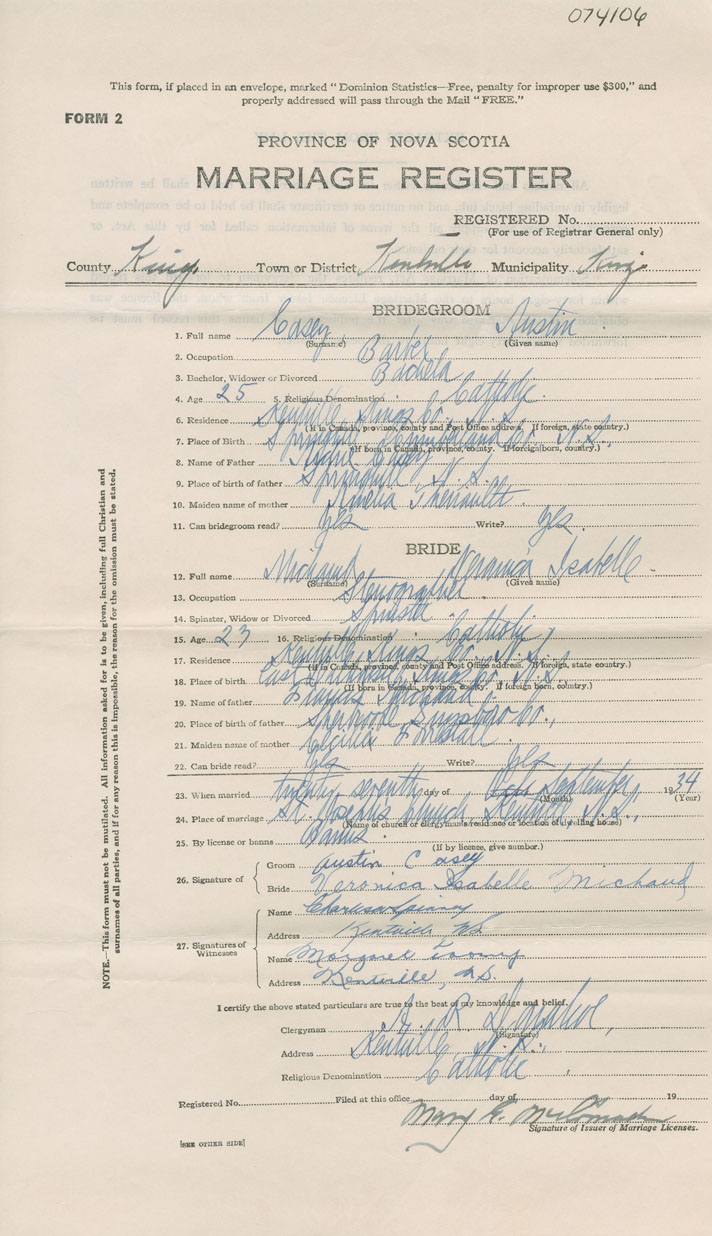 074106
This form, if placed in an envelope, marked "Dominion Statistics—Free, penalty for improper use $300," and
properly addressed will pass through the Mail "FREE."
FORM 2
PROVINCE OF NOVA SCOTIA
MARRIAGE REGISTER
REGISTERED No.
(For use of Registrar General only)
County Kings Town or District Kentville Municipality Kings
BRIDEGROOM
1. Full name Casey Austin
(Surname) (Given name)
2. Occupation Barber
3. Bachelor, Widower or Divorced Bachelor
4. Age 25 5. Religious Denomination Catholic
6. Residence Kentville Kings Co. N.S.
(If in Canada, province, county and Post Office address. If foreign, state country.)
7. Place of Birth Springhill Cumberland Co. N.S.
(If born in Canada, province, county. If foreign born, country.)
8. Name of Father Casey
9. Place of birth of father Springhill N.S.
10. Maiden name of mother Amelia Theriault
11. Can bridegroom read? Yes Write? Yes
BRIDE
12. Full name Michaud Veronica Isabelle
(Surname) (Given name)
13. Occupation Stenographer
14. Spinster, Widow or Divorced Spinster
15. Age 23 16. Religious Denomination Catholic
17. Residence Kentville Kings Co. N.S.
(If in Canada, province, county and Post Office address. If foreign, state country.)
18. Place of birth Kings Co. N.S.
(If born in Canada, province, county. If foreign born, country.)
19. Name of father Michaud
20. Place of birth of father Sherwood Co.,
21. Maiden name of mother Cecilia
22. Can bride read? Yes Write? Yes
23. When married twenty seventh day of September 1934
(Month) (Year)
24. Place of marriage St. Josephs Church Kentville, N.S.,
(Name of church or clergyman's residence or location of dwelling house)
25. By license or banns Banns
(If by licence, give number.)
26. Signature of
Groom Austin Casey
Bride Veronica Isabelle Michaud
27. Signatures of Witnesses
Name Charles
Address Kentville NS
Name Margaret
Address Kentville, N.S.
I certify the above stated particulars are true to the best of my knowledge and belief.
Clergyman
(Signature)
Address Kentville N.S.,
Religious Denomination Catholic
Registered No. Filed at this office day of 19
Mary E.
Signature of Issuer of Marriage Licenses.
[SEE OTHER SIDE]
NOTE.—This form must not be mutilated. All information asked for is to be given, including full Christian and
surnames of all parties, and if for any reason this is impossible, the reason for the omission must be stated.